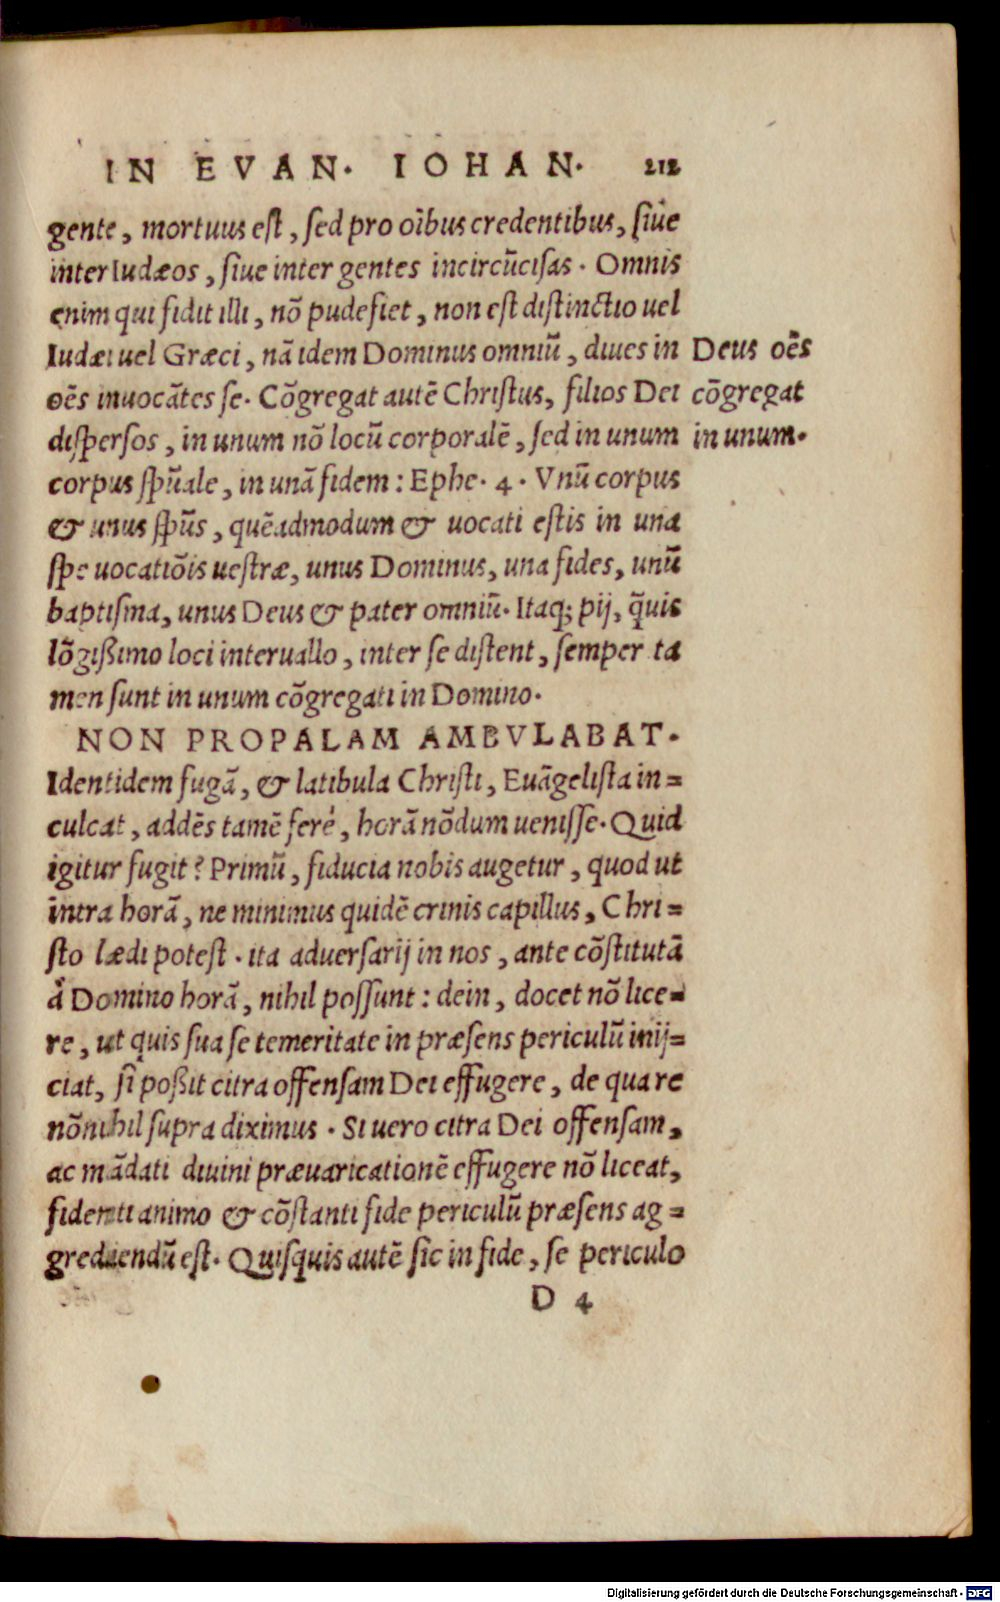 IN EVAN. IOHAN. 212
gente, mortuus est, sed pro oībus credentibus, siue
inter Iudæos, siue inter gentes incircūcisas. Omnis
enim qui fidit illi, nō pudefiet, non est distinctio uel
Iudæi uel Græci, nā idem Dominus omniū, diues in
oēs inuocātes se. Cōgregat autē Christus, filios Dei
dispersos, in unum nō locū corporalē, sed in unum
corpus spūale, in unā fidem: Ephe. 4. Vnū corpus
& unus spūs, quēadmodum & uocati estis in una
spe uocatiōis uestræ, unus Dominus, una fides, unū
baptisma, unus Deus & pater omniū. Itaq; pij, q̄uis
lōgißimo loci interuallo, inter se distent, semper ta
men sunt in unum cōgregati in Domino.
NON PROPALAM AMBVLABAT.
Identidem fugā, & latibula Christi, Euāgelista in=
culcat, addēs tamē ferè, horā nōdum uenisse. Quid
igitur fugit? Primū, fiducia nobis augetur, quod ut
intra horā, ne minimus quidē crinis capillus, Chri=
sto lædi potest. ita aduersarij in nos, ante cōstitutā
à Domino horā, nihil possunt: dein, docet nō lice=
re, ut quis sua se temeritate in præsens periculū inij=
ciat, si poßit citra offensam Dei effugere, de qua re
nōnihil supra diximus. Si uero citra Dei offensam,
ac mādati diuini præuaricationē effugere nō liceat,
fidenti animo & cōstanti fide periculū præsens ag=
grediendū est. Quisquis autē sic in fide, se periculo
D 4
Deus oēs
cōgregat
in unum.
Digitalisierung gefördert durch die Deutsche Forschungsgemeinschaft - DFG